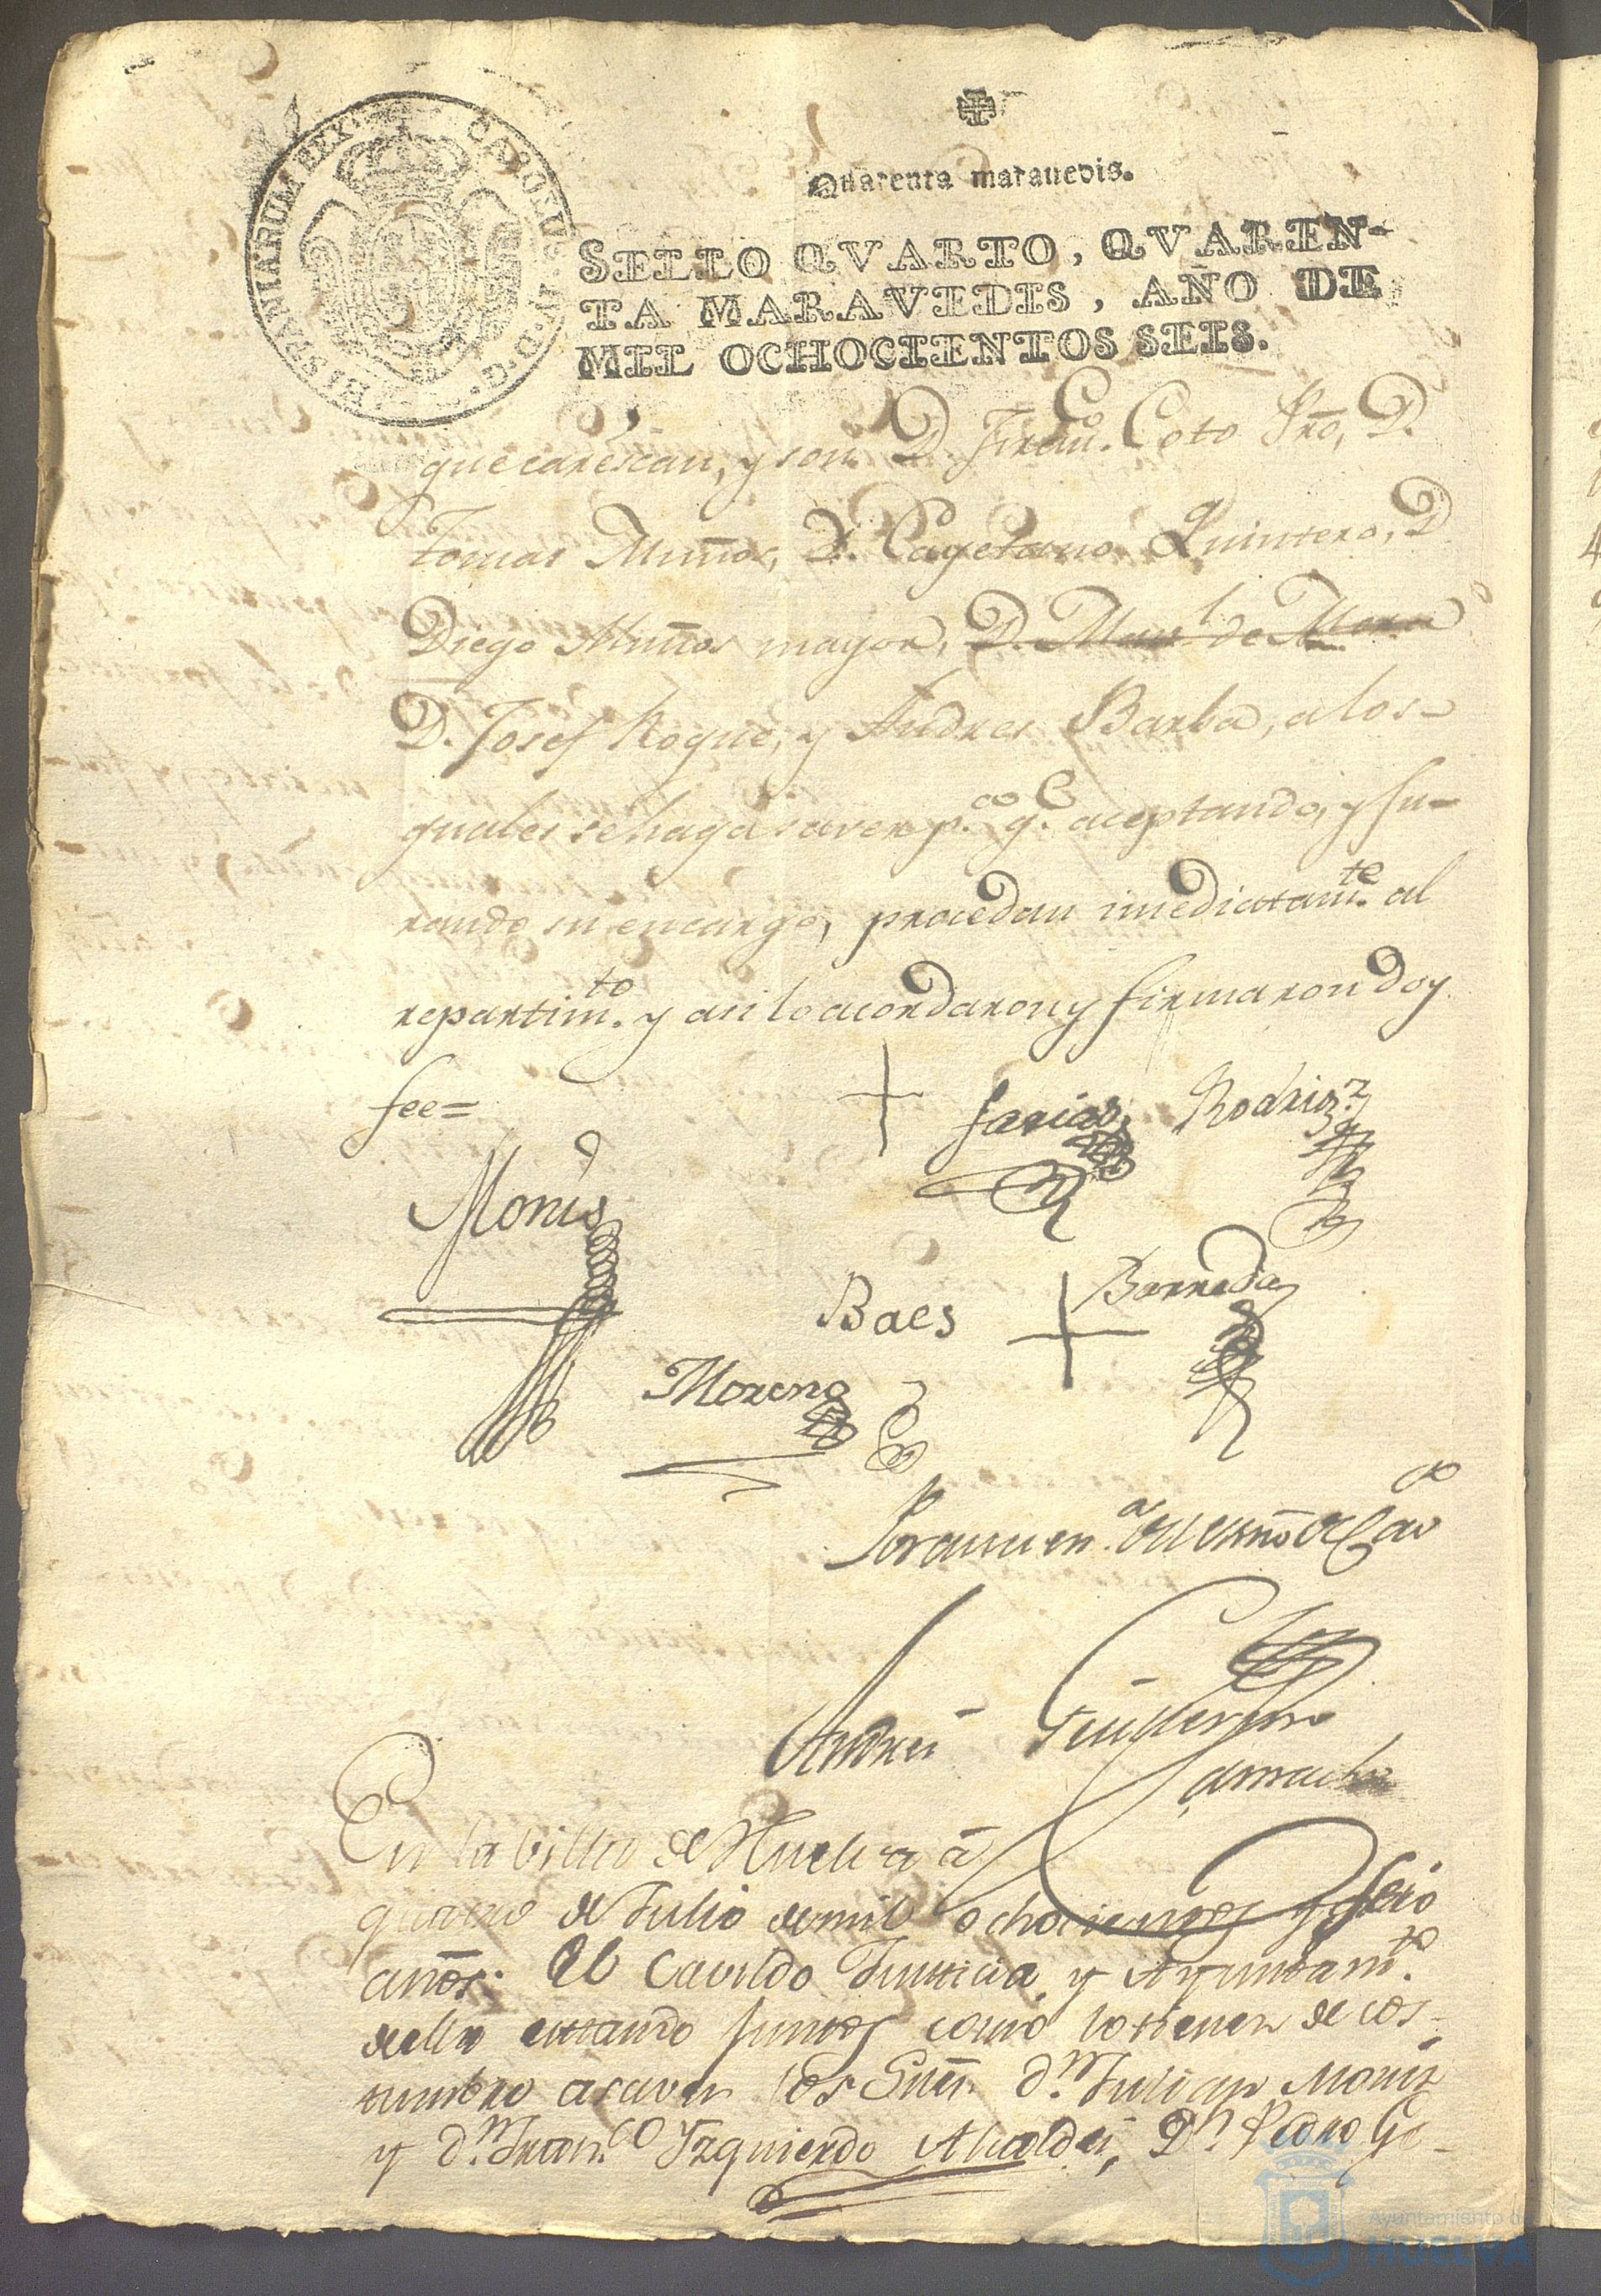 HISPANIARUM REX. CAROLUS IV. D. G.
Quarenta maravedis.
SELLO QVARTO, QVAREN-
TA MARAVEDIS, AÑO DE
MIL OCHOCIENTOS SEIS.
que carescan, y son D. Franco. Coto Pro, D.
Tomas Muños, D. Cayetano Quintero, D
Diego Muños mayor, D. Manl de Mora
D. Josef Roque, y Andres Barba, a los-
quales se haga saver p. q. aceptando, y Ju-
rando su encargo, procedan imediatamte. al
repartimto. y asi lo acordaron y firmaron doy
fee=
Farias Rodrigz
Monis
Baes Barreda
Moreno
Andres Guillermo
Camacho
En la Villa de Huelva a
quatro de Julio de mil ochocientos y seis
años: El Cavildo Justicia y Ayuntamto.
della estando juntos como lo tienen de cos-
tumbre a saver los Sres. Dn. Julian Monis
y Dn. Franco Yzquierdo Alcaldes, Dn. Pedro Go-
Ayuntamiento de
HUELVA